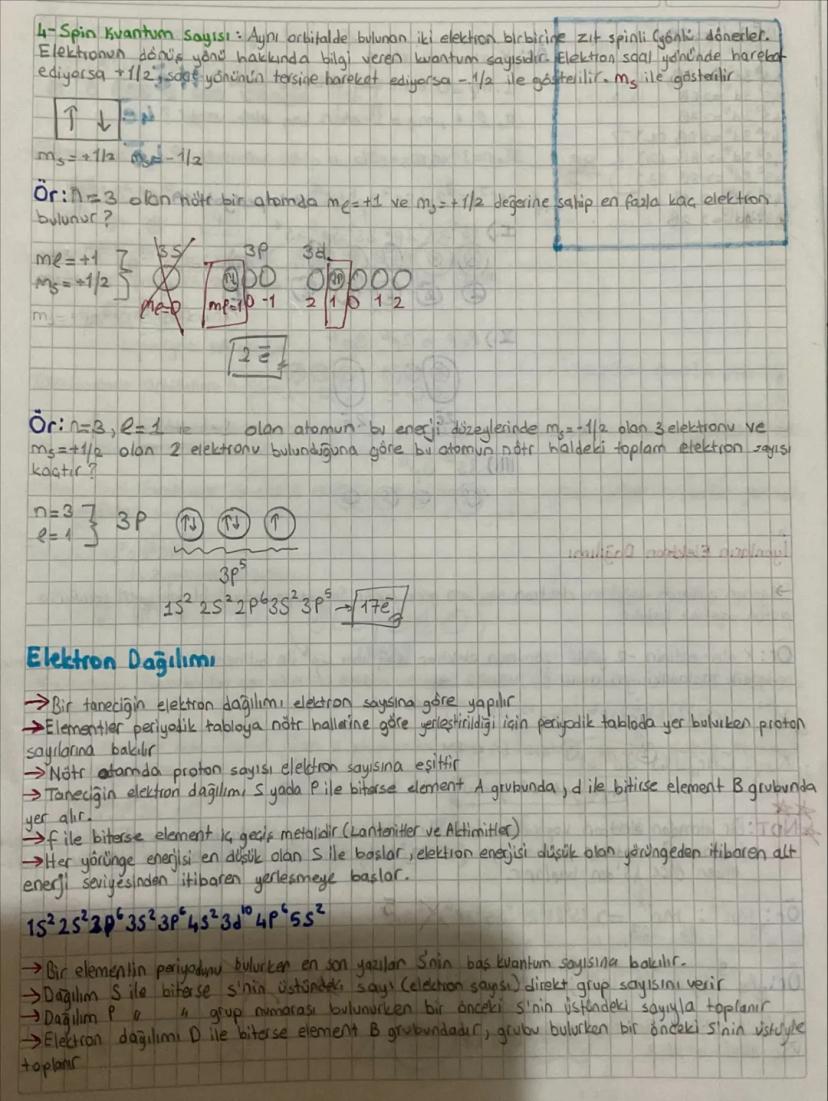 4-Spin Kuantum Sayısı: Aynı orbitalde bulunan iki elektron birbirine zıt spinli (yönlü dönerler.
Elektronun dönüş yönü hakkında bilgi veren kuantum sayısıdır. Elektron saat yönünde hareket
ediyorsa +1/2, saat yönünün tersine hareket ediyorsa -1/2 ile gösterilir. ms ile gösterilir
↑ ↓
ms=+1/2 ms=-1/2
Ör: n=3 olan nötr bir atomda mℓ=+1 ve ms=+1/2 değerine sahip en fazla kaç elektron
bulunur?
3S 3P 3d
mℓ=+1
ms=+1/2
mℓ=0 mℓ=1 0 -1 2 1 0 1 2
2 e̅
Ör: n=3, ℓ=1 olan atomun bu enerji düzeylerinde ms=-1/2 olan 3 elektronu ve
ms=+1/2 olan 2 elektronu bulunduğuna göre bu atomun nötr haldeki toplam elektron sayısı
kaçtır?
n=3
ℓ=1 3P ↑↓ ↑↓ ↑
3p⁵
1S² 2S² 2P⁶ 3S² 3P⁵ → 17e̅
Elektron Dağılımı
→Bir taneciğin elektron dağılımı elektron sayısına göre yapılır
→Elementler periyodik tabloya nötr hallerine göre yerleştirildiği için periyodik tabloda yer bulurken proton
sayılarına bakılır
→Nötr atomda proton sayısı elektron sayısına eşittir
→Taneciğin elektron dağılımı S yada P ile biterse element A grubunda, d ile bitirse element B grubunda
yer alır.
→f ile biterse element iç geçiş metalidir (Lantenitler ve Aktimitler)
→Her yörünge enerjisi en düşük olan S ile başlar, elektron enerjisi düşük olan yörüngeden itibaren alt
enerji seviyesinden itibaren yerleşmeye başlar.
1S² 2S² 2p⁶ 3S² 3P⁶ 4S² 3d¹⁰ 4P⁶ 5S²
→Bir elementin periyodunu bulurken en son yazılan S'nin baş kuantum sayısına bakılır.
→Dağılım S ile biterse s'nin üstündeki sayı (elektron sayısı) direkt grup sayısını verir
→Dağılım P " " grup numarası bulunurken bir önceki s'nin üstündeki sayıyla toplanır
→Elektron dağılımı D ile biterse element B grubundadır, grubu bulurken bir önceki s'nin üstüyle
toplanır